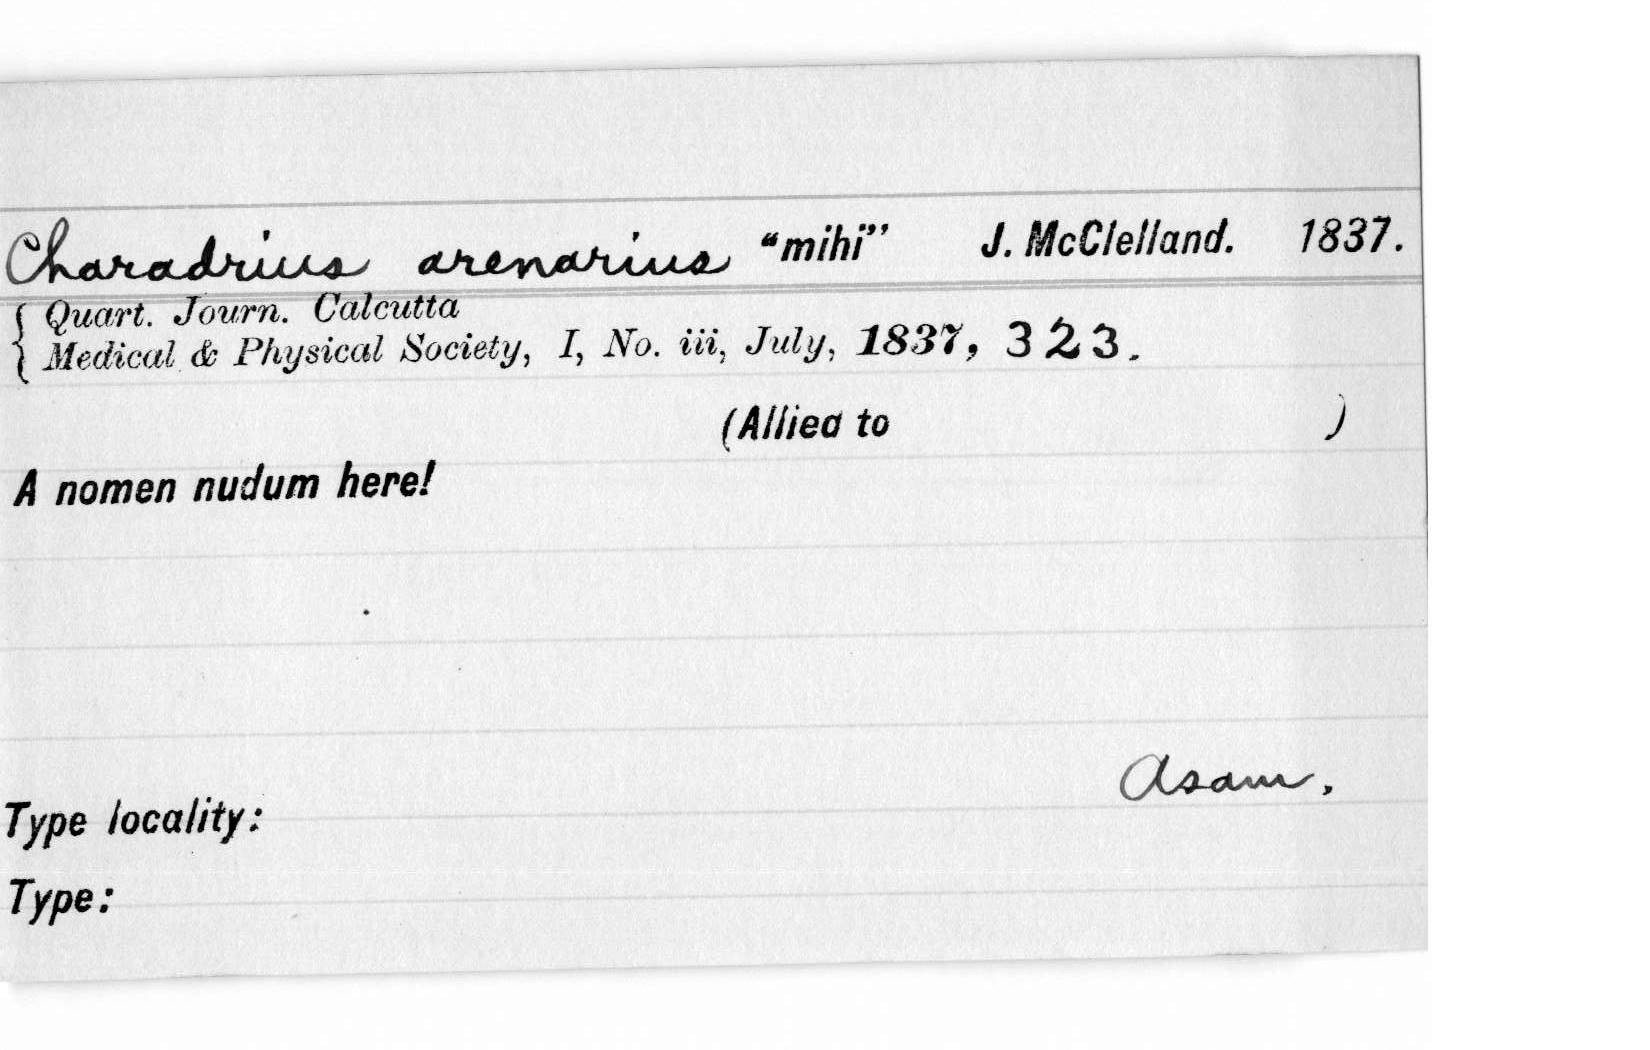 Charadrius arenarius "mihi" J. McClelland. 1837.
{ Quart. Journ. Calcutta
Medical & Physical Society, I, No. iii, July, 1837, 323.
(Allied to )
A nomen nudum here!
Asam.
Type locality:
Type: